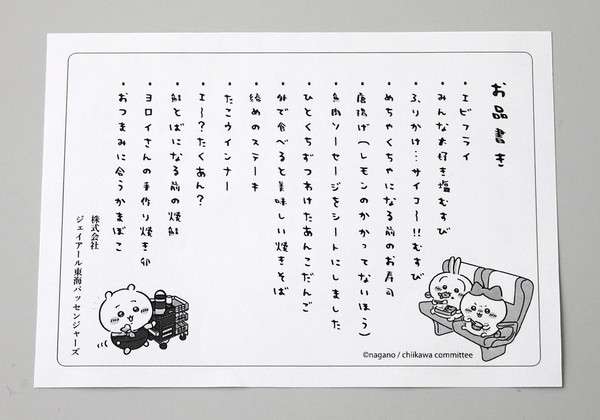 お品書き
・エビフライ
・みんなお好き塩むすび
・ふりかけ…サイコ〜!!むすび
・めちゃくちゃになる前のお寿司
・唐揚げ（レモンのかかってないほう）
・魚肉ソーセージをシートにしました
・ひとくちずつわけたあんこだんご
・外で食べると美味しい焼きそば
・締めのステーキ
・たこウインナー
・エ〜？たくあん？
・鮭とばになる前の焼鮭
・ヨロイさんの手作り焼き卵
・おつまみに合うかまぼこ
株式会社
ジェイアール東海パッセンジャーズ
©nagano / chiikawa committee